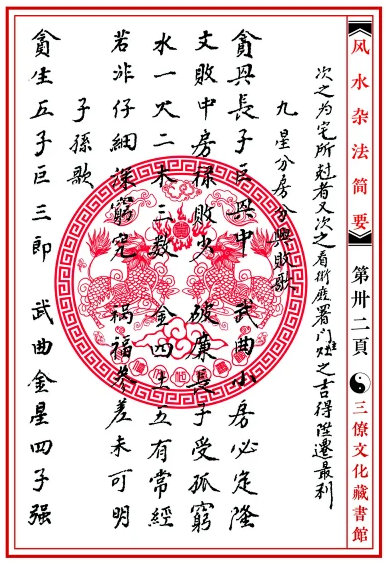 风水杂法简要 第卅二頁 三僚文化藏書館
次之为宅所尅者又次之看衙署门之吉得陞遷最利
九星分房分興敗歌
貪興長子巨興中 武曲小房必定隆
文敗中房祿敗少 破廉長子受孤窮
水一火二木三数 金四土五有常經
若非仔細窮究 禍福差未可明
子孫歌
貪生五子巨三郎 武曲金星四子强